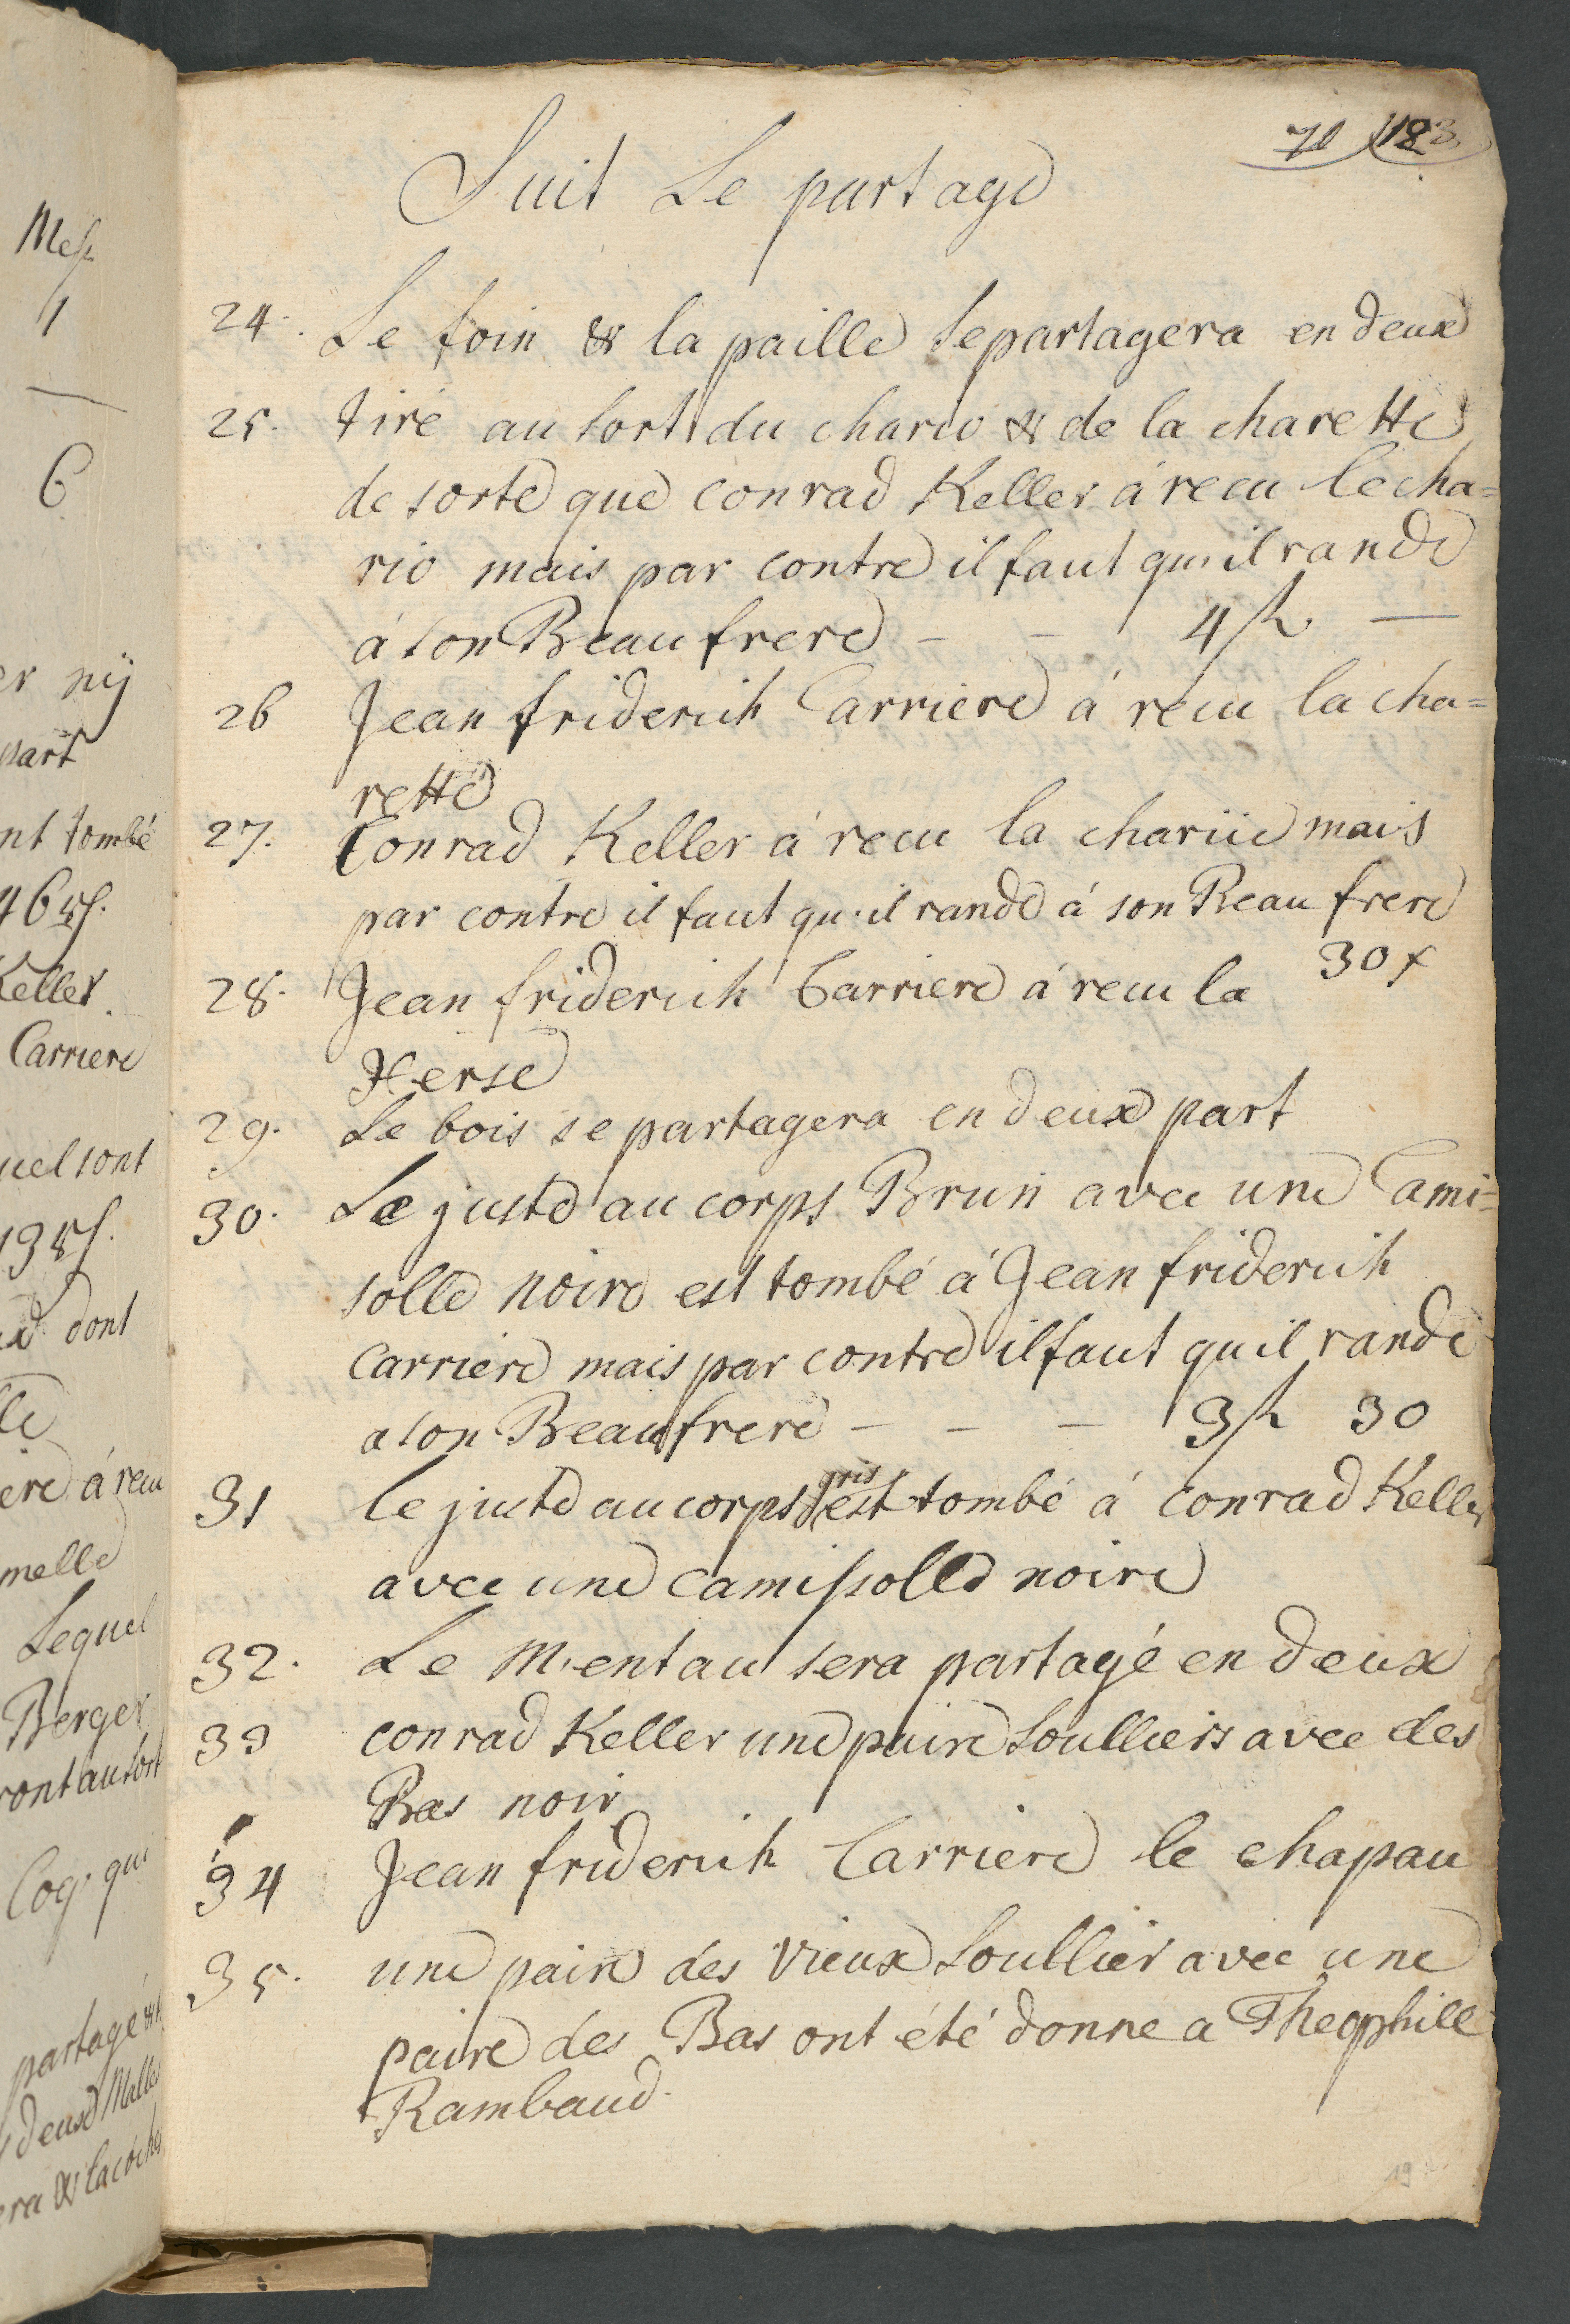 71 183
Suit Le partage
24. Le foin & la paille se partagera en deux
25. tiré au sort du chario & de la charette
de sorte que conrad Keller á recu le cha=
rio mais par contre il faut qu'il rande
á son Beau frere - - 4 fl. —
26 Jean friderich Carriere á recu la cha=
rette
27. Conrad Keller á recu la chariie mais
par contre il faut qu'il rande á son Beau frere
30 x
28. Jean friderich Carriere á recu la
Herse
29. Le bois se partagera en deux part
30. Le juste au corps Brun avec une Cami=
solle noire est tombé á Jean friderich
Carriere mais par contre il faut qu il rande
a son Beau frere - - - 3 fl 30
gris
31 le juste au corps est tombé á conrad Keller
avec une camissolle noire
32. Le Mentau sera partagé en deux
33 conrad Keller une paire Soulliers avec des
Bas noir
34 Jean friderich Carriere le chapau
35. une paire des vieux Soullier avec une
paire des Bas ont été donne a Theophile
Rambaud.
Mess
1
6
er nij
part
nt tombé
Keller
Carriere
quel sont
dont
lle
ere á recu
melle
Lequel
Berger
ront au sort
Coq. qui
partagé &
deux Malles